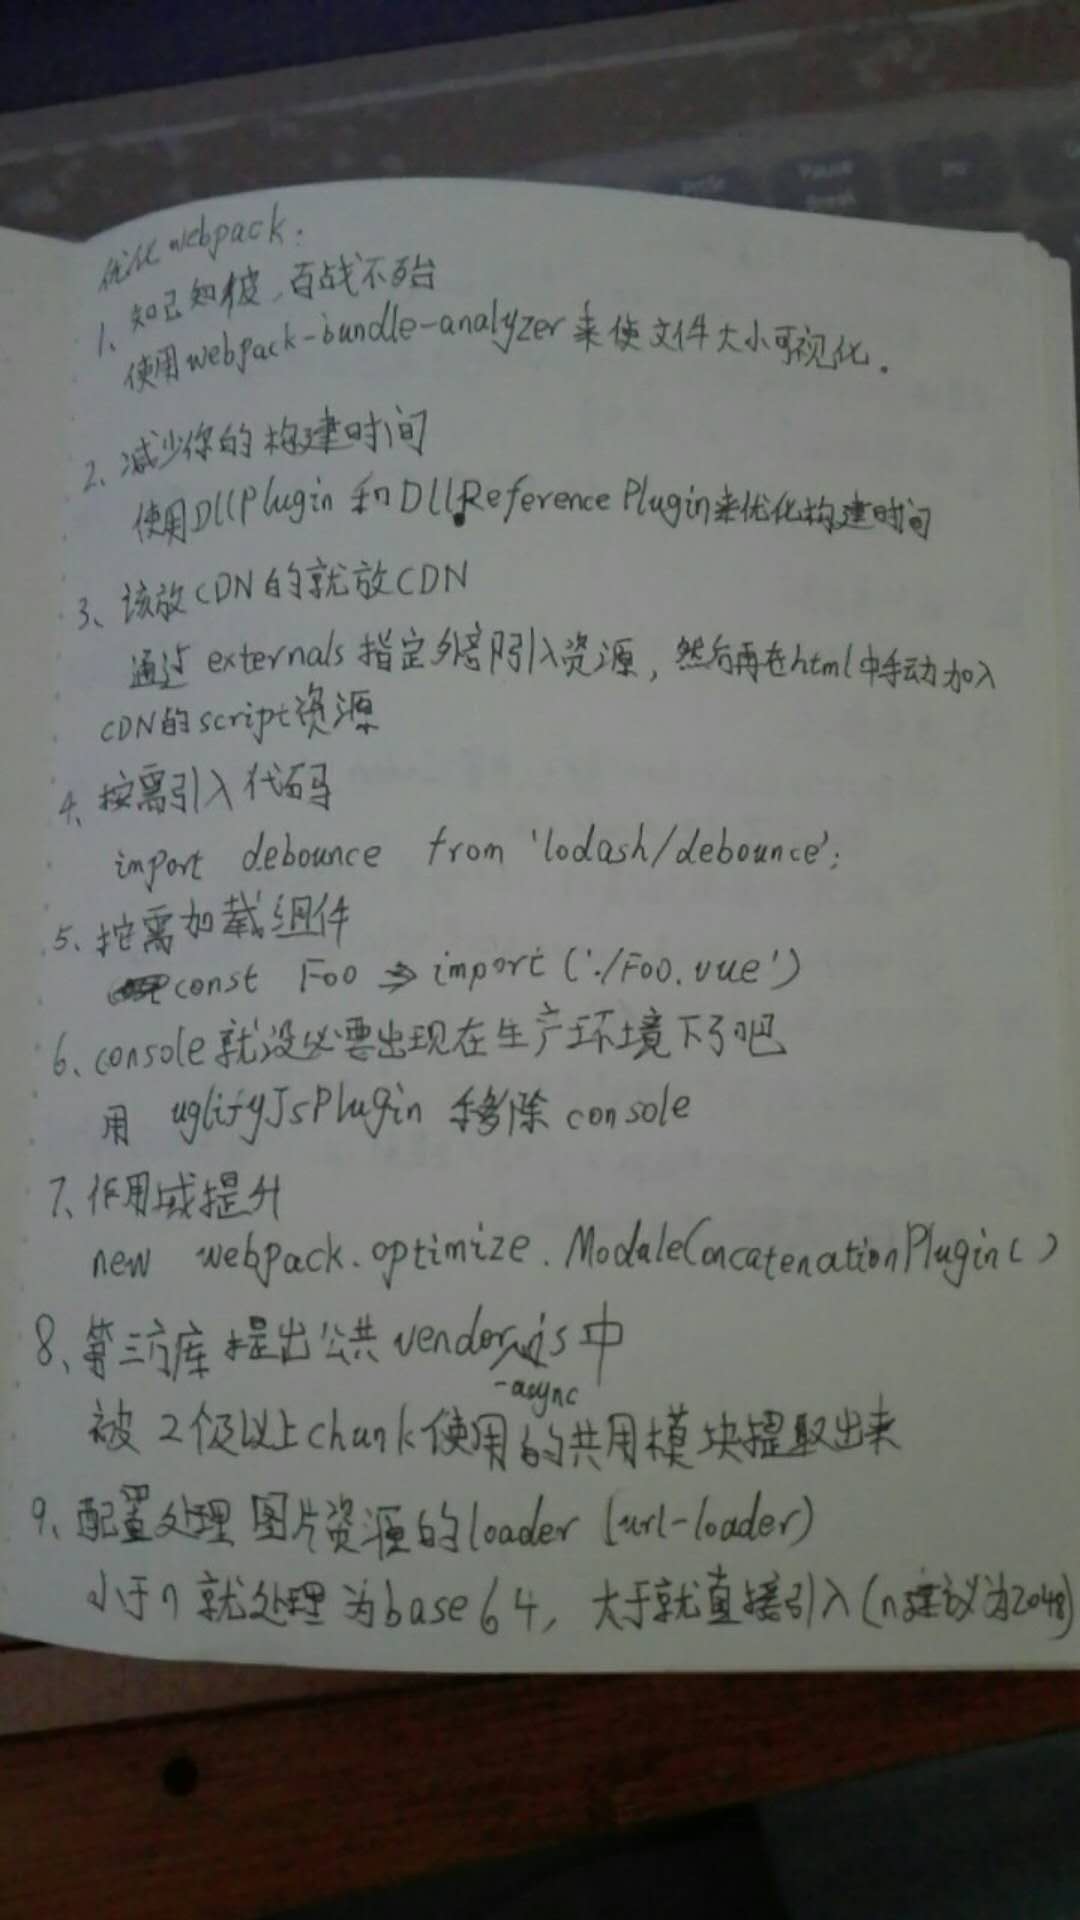 优化webpack:
1、知己知彼,百战不殆
使用webpack-bundle-analyzer来使文件大小可视化。
2、减少你的构建时间
使用DllPlugin和DllReferencePlugin来优化构建时间
3、该放CDN的就放CDN
通过externals指定外部引入资源,然后再在html中手动加入
CDN的script资源
4、按需引入代码
import debounce from 'lodash/debounce';
5、按需加载组件
const Foo => import('./Foo.vue')
6、console就没必要出现在生产环境下了吧
用 uglifyJsPlugin 移除console
7、作用域提升
new webpack.optimize.ModuleConcatenationPlugin()
8、第三方库提出公共vendor-async.js中
被2个及以上chunk使用的共用模块提取出来
9、配置处理图片资源的loader (url-loader)
小于n就处理为base64,大于就直接引入(n建议为2048)